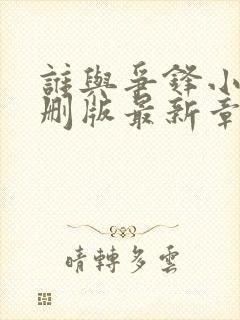 誰與爭鋒小
刪版最新章
晴轉多雲